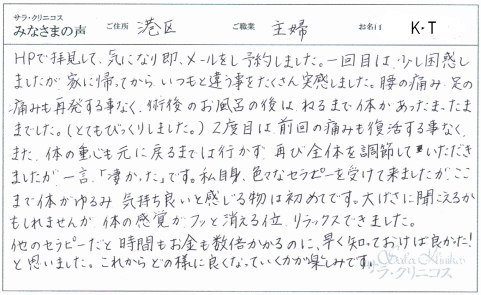 サラ・クリニコス
みなさまの声 ご住所 港区 ご職業 主婦 お名前 K・T
HPで拝見して、気になり即、メールをし予約しました。一回目は、少し困惑し
ましたが家に帰ってから、いつもと違う事をたくさん実感しました。腰の痛み・足の
痛みも再発する事なく、術後のお風呂の後はねるまで体があったまったま
までした。(とてもびっくりしました。)2度目は前回の痛みも復活する事なく、
また、体の重心も元に戻るまでは行かず、再び全体を調節していただき
ましたが、一言、「凄かった」です。私自身、色々なセラピーを受けて来ましたが、ここ
まで体がゆるみ、気持ち良いと感じる物は初めてです。大げさに聞こえるか
もしれませんが、体の感覚がフッと消える位、リラックスできました。
他のセラピーだと時間もお金も数倍かかるのに、早く知っておけば良かった!
と思いました。これからどの様に良くなっていくかが楽しみです。
Salus Klinikos
サラ・クリニコス